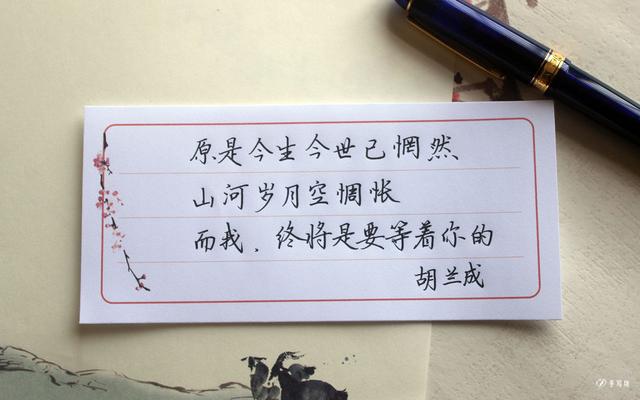 原是今生今世已惘然
山河岁月空惆怅
而我，终将是要等着你的
胡兰成
手写端